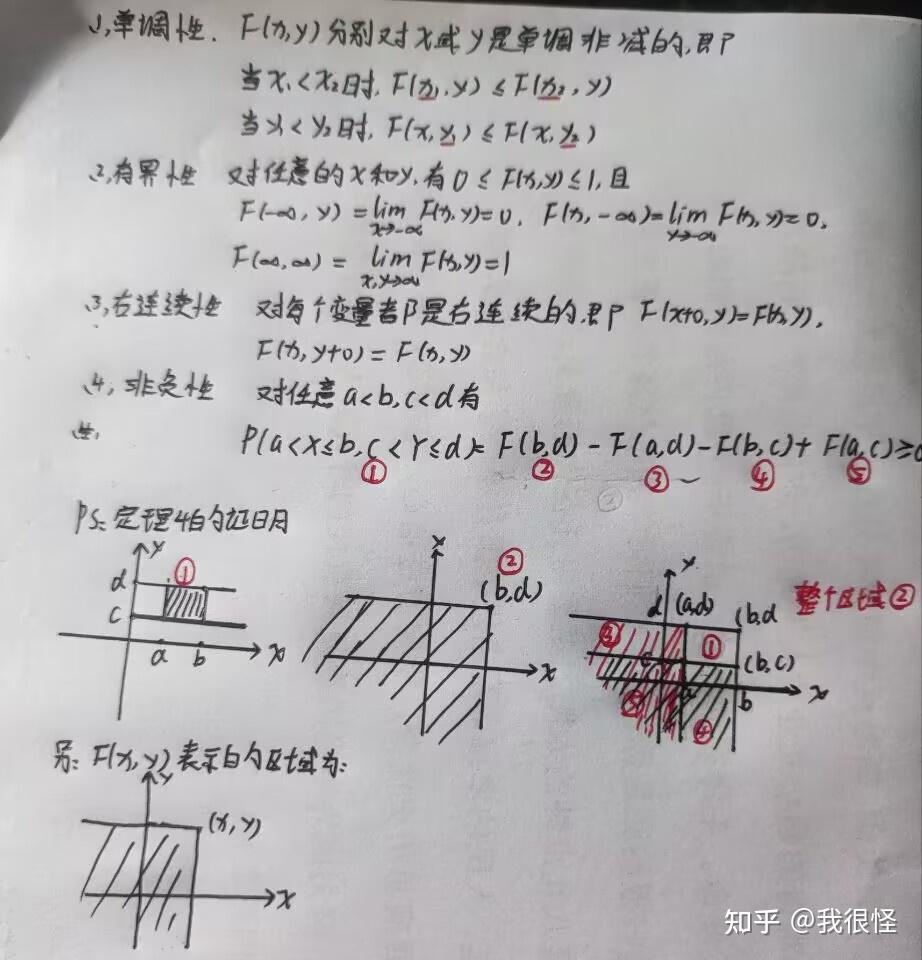 1,单调性. F(x,y)分别对x或y是单调非减的,即
当x₁<x₂时, F(x₁,y)≤F(x₂,y)
当y₁<y₂时, F(x,y₁)≤F(x,y₂)
2,有界性 对任意的x和y,有0≤F(x,y)≤1,且
F(-∞,y)=lim F(x,y)=0, F(x,-∞)=lim F(x,y)=0,
x→-∞ y→-∞
F(∞,∞)=lim F(x,y)=1
x,y→∞
3,右连续性 对每个变量都是右连续的,即 F(x+0,y)=F(x,y),
F(x,y+0)=F(x,y)
4,非负性 对任意a<b,c<d有
P(a<X≤b,c<Y≤d)=F(b,d)-F(a,d)-F(b,c)+F(a,c)≥0
① ② ③ ④ ⑤
②
PS:定理4的证明
y
d ①
c
a b x
y
②
(b,d)
x
y
d (a,d) (b,d 整个区域②
③ ①
c (b,c)
a b x
⑤ ④
另:F(x,y)表示的区域为:
y
(x,y)
x
知乎 @我很怪